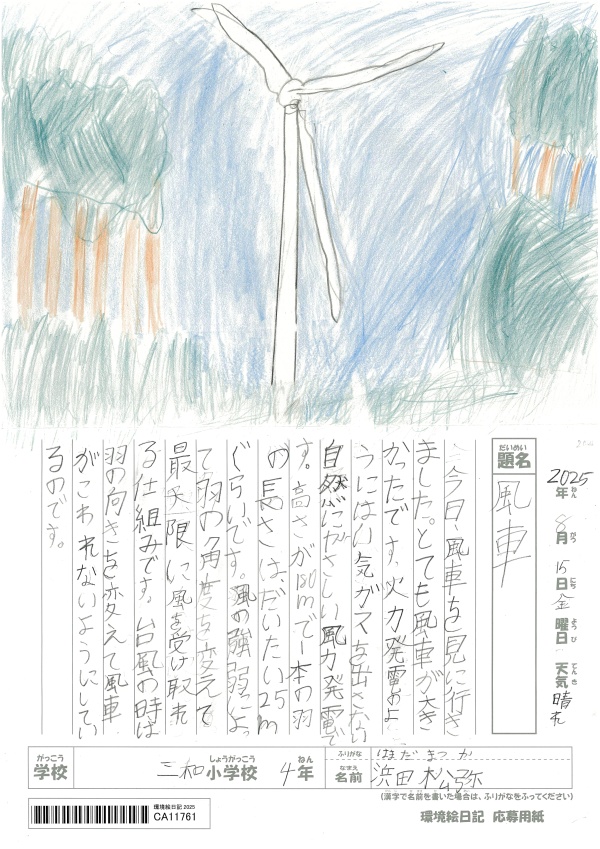 だいめい
題名
風車
2025年 8月 15日 金曜日 天気 晴れ
ねん がつ にち ようび てんき
今日、風車を見に行き
ました。とても風車が大き
かったです。火力発電のよ
うにはい気ガスを出さない
自然にやさしい風力発電で
す。高さが100mで一本の羽
の長さは、だいたい25m
ぐらいです。風の強弱によっ
て羽の角度を変えて
最大限に風を受け取れ
る仕組みです。台風の時は
羽の向きを変えて風車
がこわれないようにしてい
るのです。
がっこう しょうがっこう ねん
学校 三和小学校 4年
ふりがな はまだ まつ
なまえ
名前 浜田 松弥
(漢字で名前を書いた場合は、ふりがなをふってください)
環境絵日記 2025
CA11761
環境絵日記 応募用紙